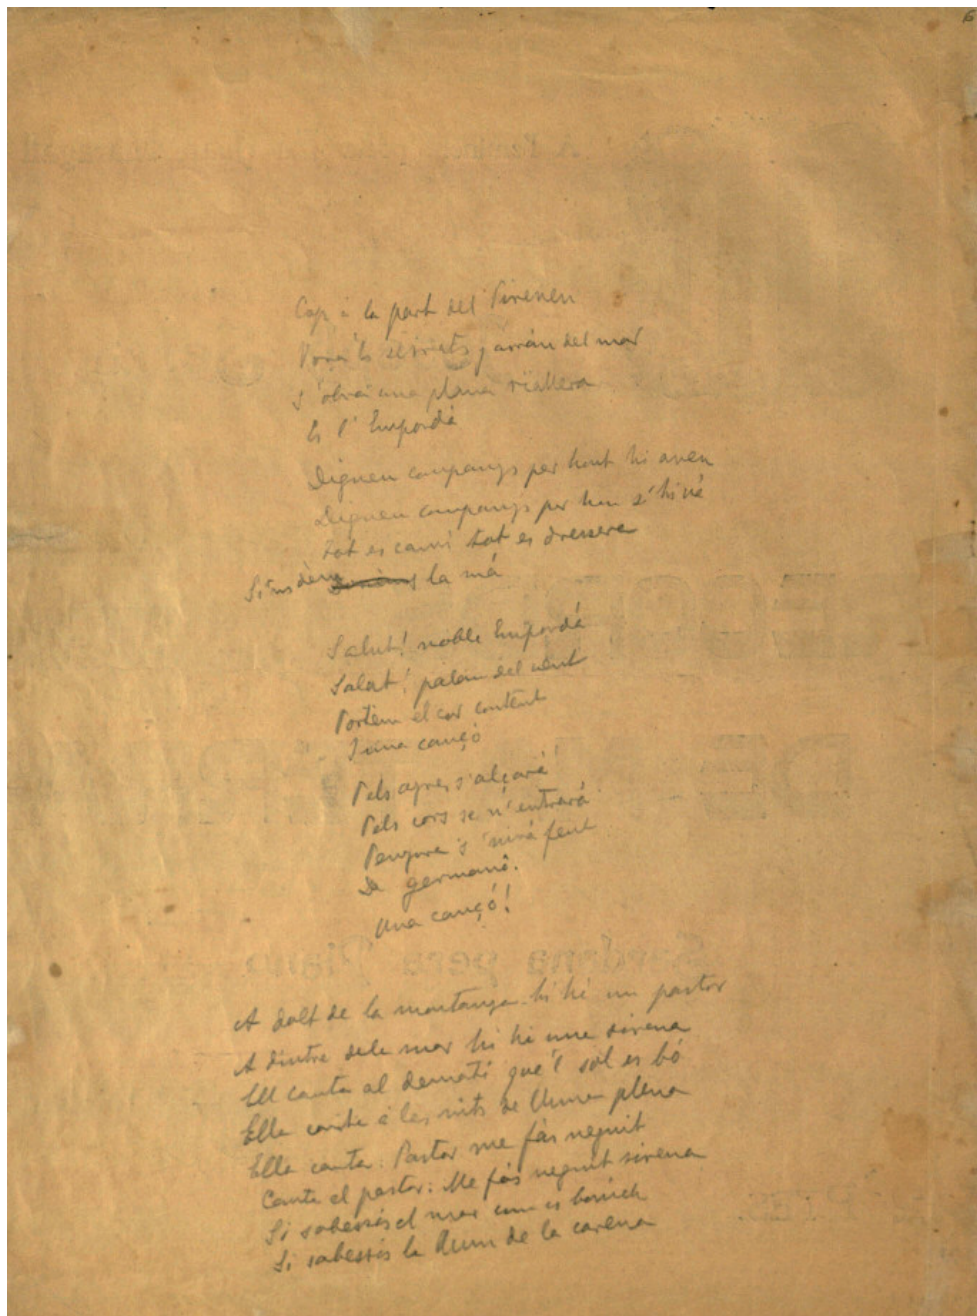 6
Cap à la part del Pireneu
Vora'ls serrats y arran del mar
S'obra una plana riallera
Es l'Empordà
Digueu companys per hont hi aneu
Digueu companys per hon s'hi vá
tot es camí tot es dressera
Si'ns dèm la má
Salut! noble Empordá
Salut! palau del vent
Portèm el cor content
I una cançó
Pels ayres s'alçará
Pels cors se n'entrará
Penyora s'nirá fent
De germanó.
Una cançó!
A dalt de la montanya hi há un pastor
A dintre dela mar hi há una sirena
Ell canta al dematí que'l sol es bó
Ella canta á les nits de lluna plena
Ella canta: Pastor me fás neguit
Canta el pastor: Me fás neguit sirena
Si sabessis el mar com es bonich
Si sabessis la llum de la carena